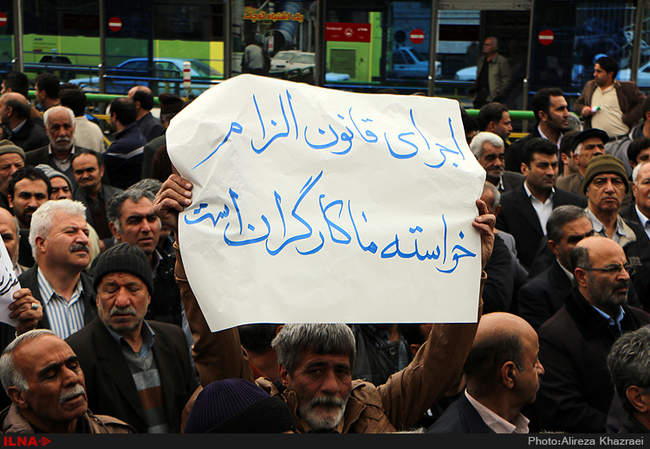 اجرای قانون الزام
خواسته ما کارگران است
ILNA
Photo:Alireza Khazraei